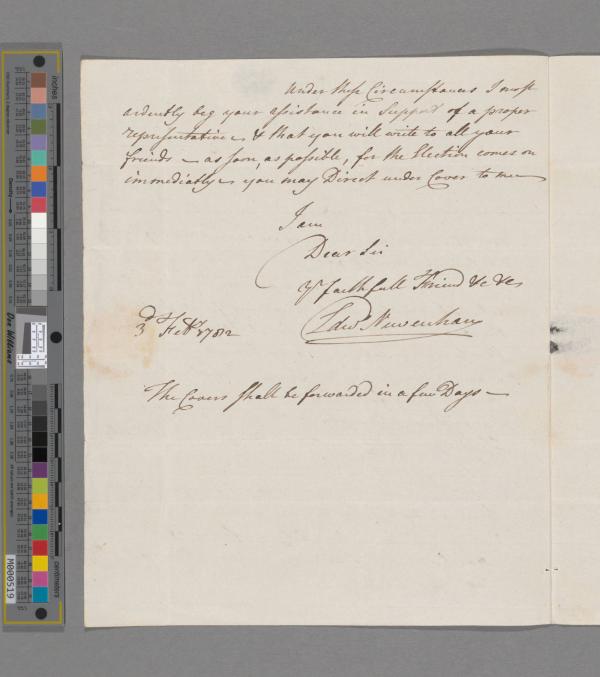 under these Circumstances I most
ardently beg your assistance in Support of a proper
representative & that you will write to all your
friends – as soon, as possible, for the Election comes on
immediately – you may Direct under Cover to me –
I am
Dear Sir
Yr faithfull Friend &c &c
Edwd Newenham
3d Febry 1782
The Covers shall be forwarded in a few Days –
inches
centimeters
Don Williams
Density
M000519